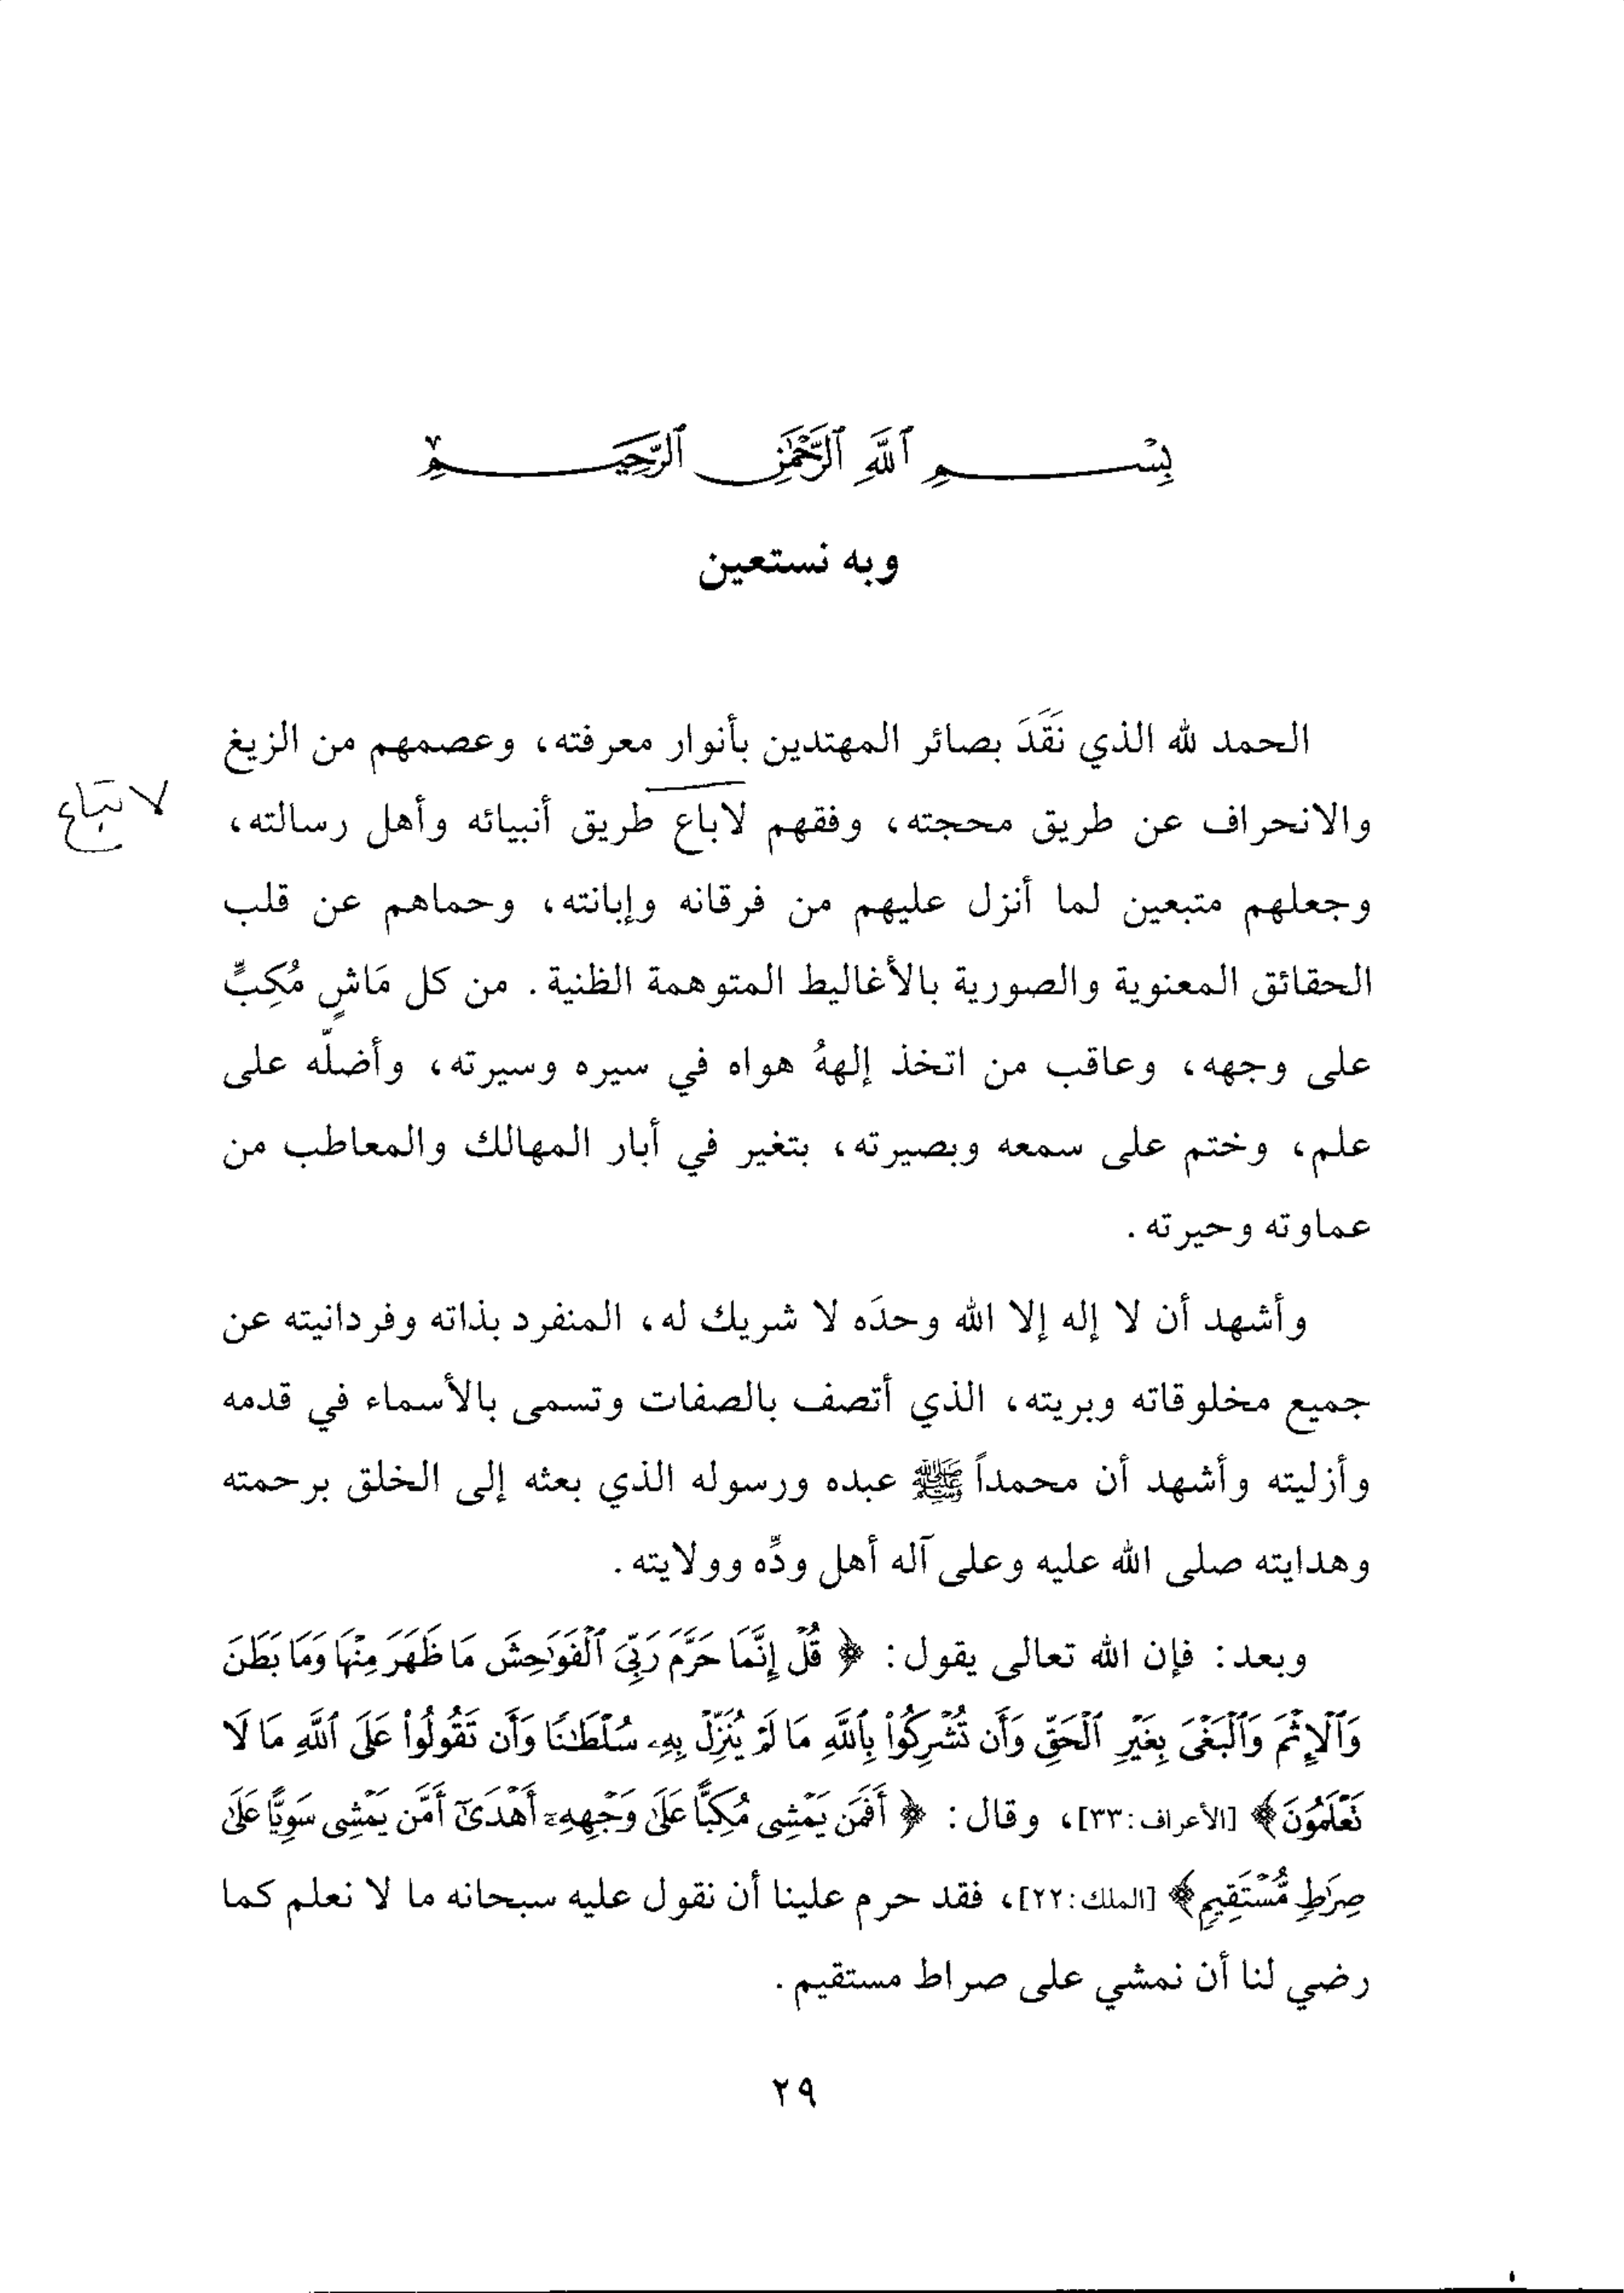 بِسْمِ ٱللَّهِ ٱلرَّحْمَٰنِ ٱلرَّحِيمِ
وبه نستعين
الحمد لله الذي نَقَدَ بصائر المهتدين بأنوار معرفته، وعصمهم من الزيغ
والانحراف عن طريق محجته، وفقهم لاباع طريق أنبيائه وأهل رسالته،
لاتباع
وجعلهم متبعين لما أنزل عليهم من فرقانه وإبانته، وحماهم عن قلب
الحقائق المعنوية والصورية بالأغاليط المتوهمة الظنية. من كل مَاشٍ مُكِبٍّ
على وجهه، وعاقب من اتخذ إلههُ هواه في سيره وسيرته، وأضلّه على
علم، وختم على سمعه وبصيرته، بتغير في أبار المهالك والمعاطب من
عماوته وحيرته.
وأشهد أن لا إله إلا الله وحدَه لا شريك له، المنفرد بذاته وفردانيته عن
جميع مخلوقاته وبريته، الذي أتصف بالصفات وتسمى بالأسماء في قدمه
وأزليته وأشهد أن محمداً ﷺ عبده ورسوله الذي بعثه إلى الخلق برحمته
وهدايته صلى الله عليه وعلى آله أهل ودِّه وولايته.
وبعد: فإن الله تعالى يقول: ﴿قُلْ إِنَّمَا حَرَّمَ رَبِّيَ ٱلْفَوَٰحِشَ مَا ظَهَرَ مِنْهَا وَمَا بَطَنَ
وَٱلْإِثْمَ وَٱلْبَغْىَ بِغَيْرِ ٱلْحَقِّ وَأَن تُشْرِكُوا۟ بِٱللَّهِ مَا لَمْ يُنَزِّلْ بِهِۦ سُلْطَـٰنًا وَأَن تَقُولُوا۟ عَلَى ٱللَّهِ مَا لَا
تَعْلَمُونَ﴾ [الأعراف: ٣٣]، وقال: ﴿أَفَمَن يَمْشِى مُكِبًّا عَلَىٰ وَجْهِهِۦٓ أَهْدَىٰٓ أَمَّن يَمْشِى سَوِيًّا عَلَىٰ
صِرَٰطٍ مُّسْتَقِيمٍ﴾ [الملك: ٢٢]، فقد حرم علينا أن نقول عليه سبحانه ما لا نعلم كما
رضي لنا أن نمشي على صراط مستقيم.
٢٩